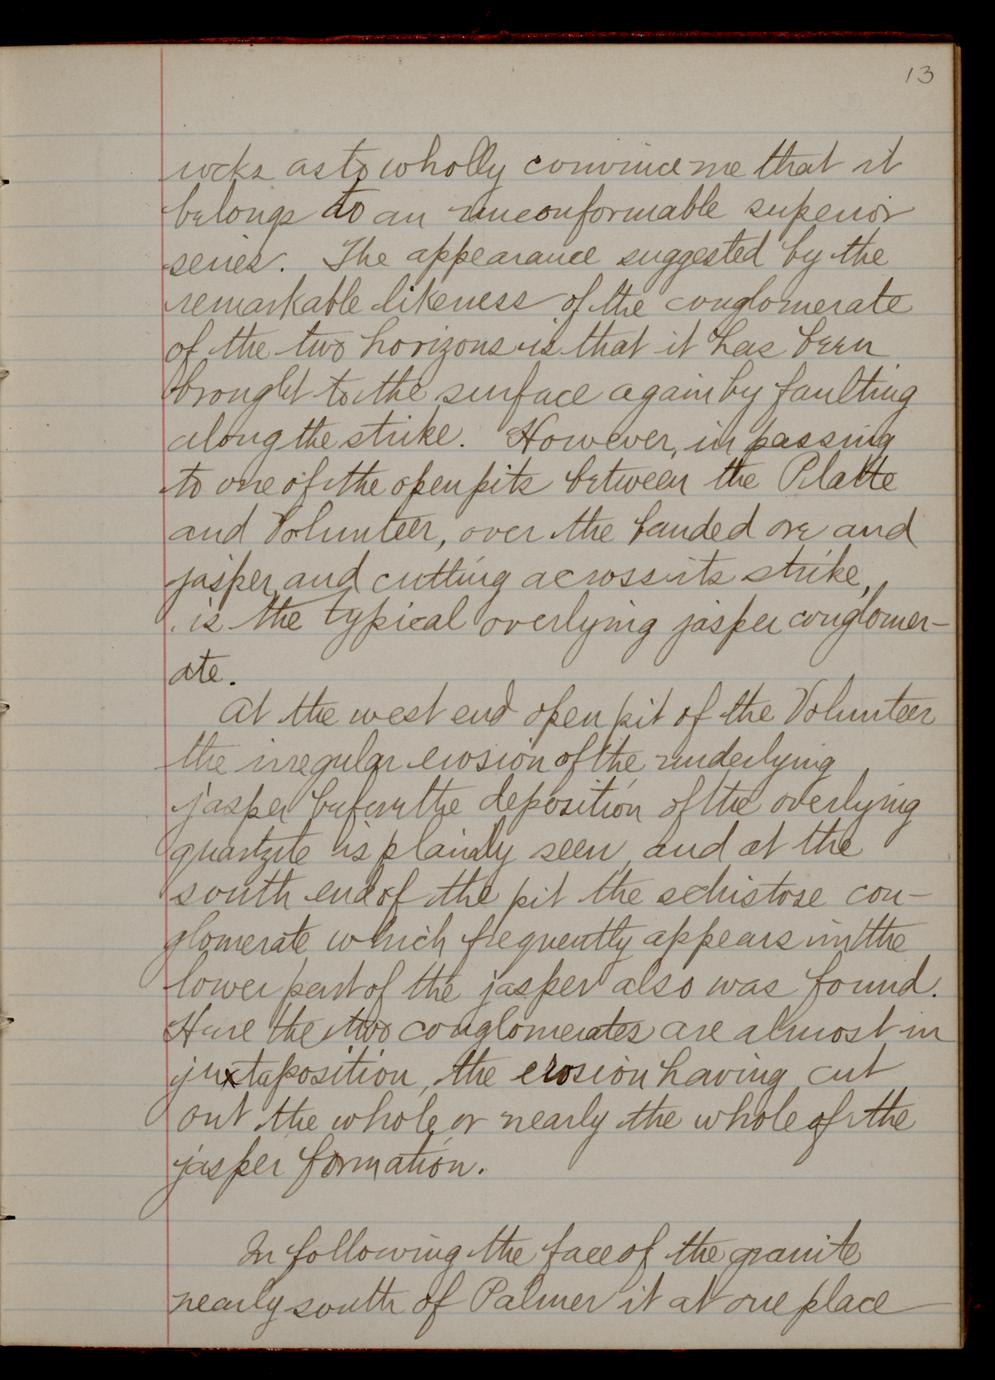 13
rocks as to wholly convince me that it
belongs to an unconformable superior
series. The appearance suggested by the
remarkable likeness of the conglomerate
of the two horizons is that it has been
brought to the surface again by faulting
along the strike. However, in passing
to one of the open pits between the Platte
and Volunteer, over the banded ore and
jasper, and cutting across its strike,
is the typical overlying jasper conglomer-
ate.
At the west end open pit of the Volunteer
the irregular erosion of the underlying
jasper before the deposition of the overlying
quartzite is plainly seen, and at the
south end of the pit the schistose con-
glomerate which frequently appears in the
lower part of the jasper also was found.
Here the two conglomerates are almost in
juxtaposition, the erosion having cut
out the whole or nearly the whole of the
jasper formation.
In following the face of the granite
nearly south of Palmer it at one place